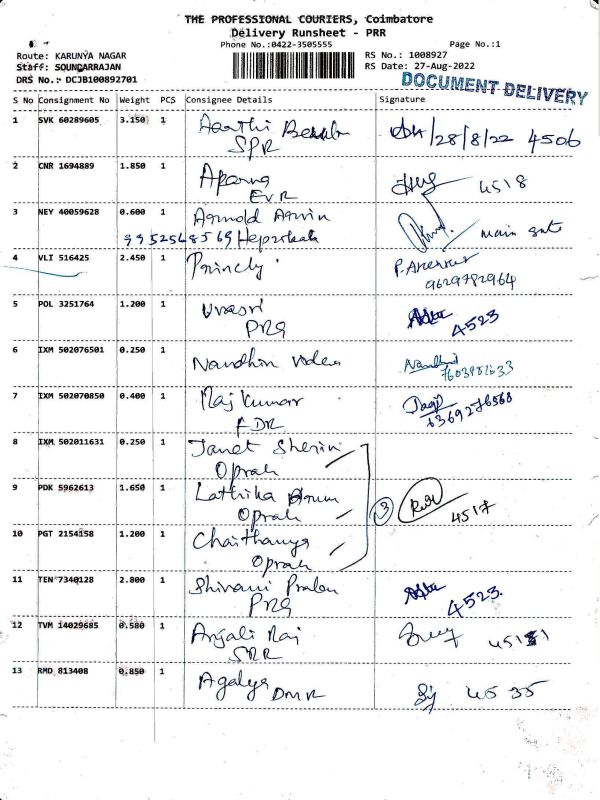 THE PROFESSIONAL COURIERS, Coimbatore
Delivery Runsheet - PRR
Phone No.:0422-3505555
Page No.:1
Route: KARUNYA NAGAR
RS No.: 1008927
Staff: SOUNDARRAJAN
RS Date: 27-Aug-2022
DRS No.: DCJB100892701
DOCUMENT DELIVERY
S No Consignment No Weight PCS Consignee Details Signature
1 SVK 60289605 3.150 1 Aarthi
SPR
28/8/22 4506
2 CNR 1694889 1.850 1 Aparna
EVR
4518
3 NEY 40059628 0.600 1 Arnold Arvin
9952568569
main gate
4 VLI 516425 2.450 1 Princely
9629782964
5 POL 3251764 1.200 1 Urvasri
PRG
4523
6 IXM 502076501 0.250 1 Nandhin
7 IXM 502070850 0.400 1 Raj Kumar
FDR
6369276568
8 IXM 502011631 0.250 1 Janet Sherin
Oprah
9 PDK 5962613 1.650 1 Lathika
Oprah
3
4517
10 PGT 2154158 1.200 1 Chaithanya
Oprah
11 TEN 7340128 2.800 1 Shivani
PRG
4523
12 TVM 14029685 0.580 1 Anjali Raj
SRR
13 RMD 813408 0.850 1 Agalya
DMR
4535